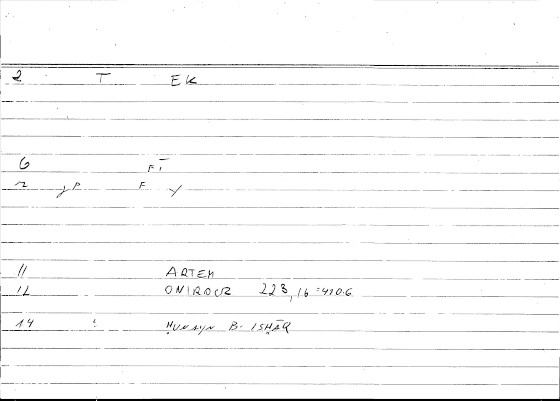 2 T EK
6 FT
2 F y
11 ARTEM
12 ONIROCR 228,16 =410.6
14 : ḤUNAYN B. ISḤĀQ